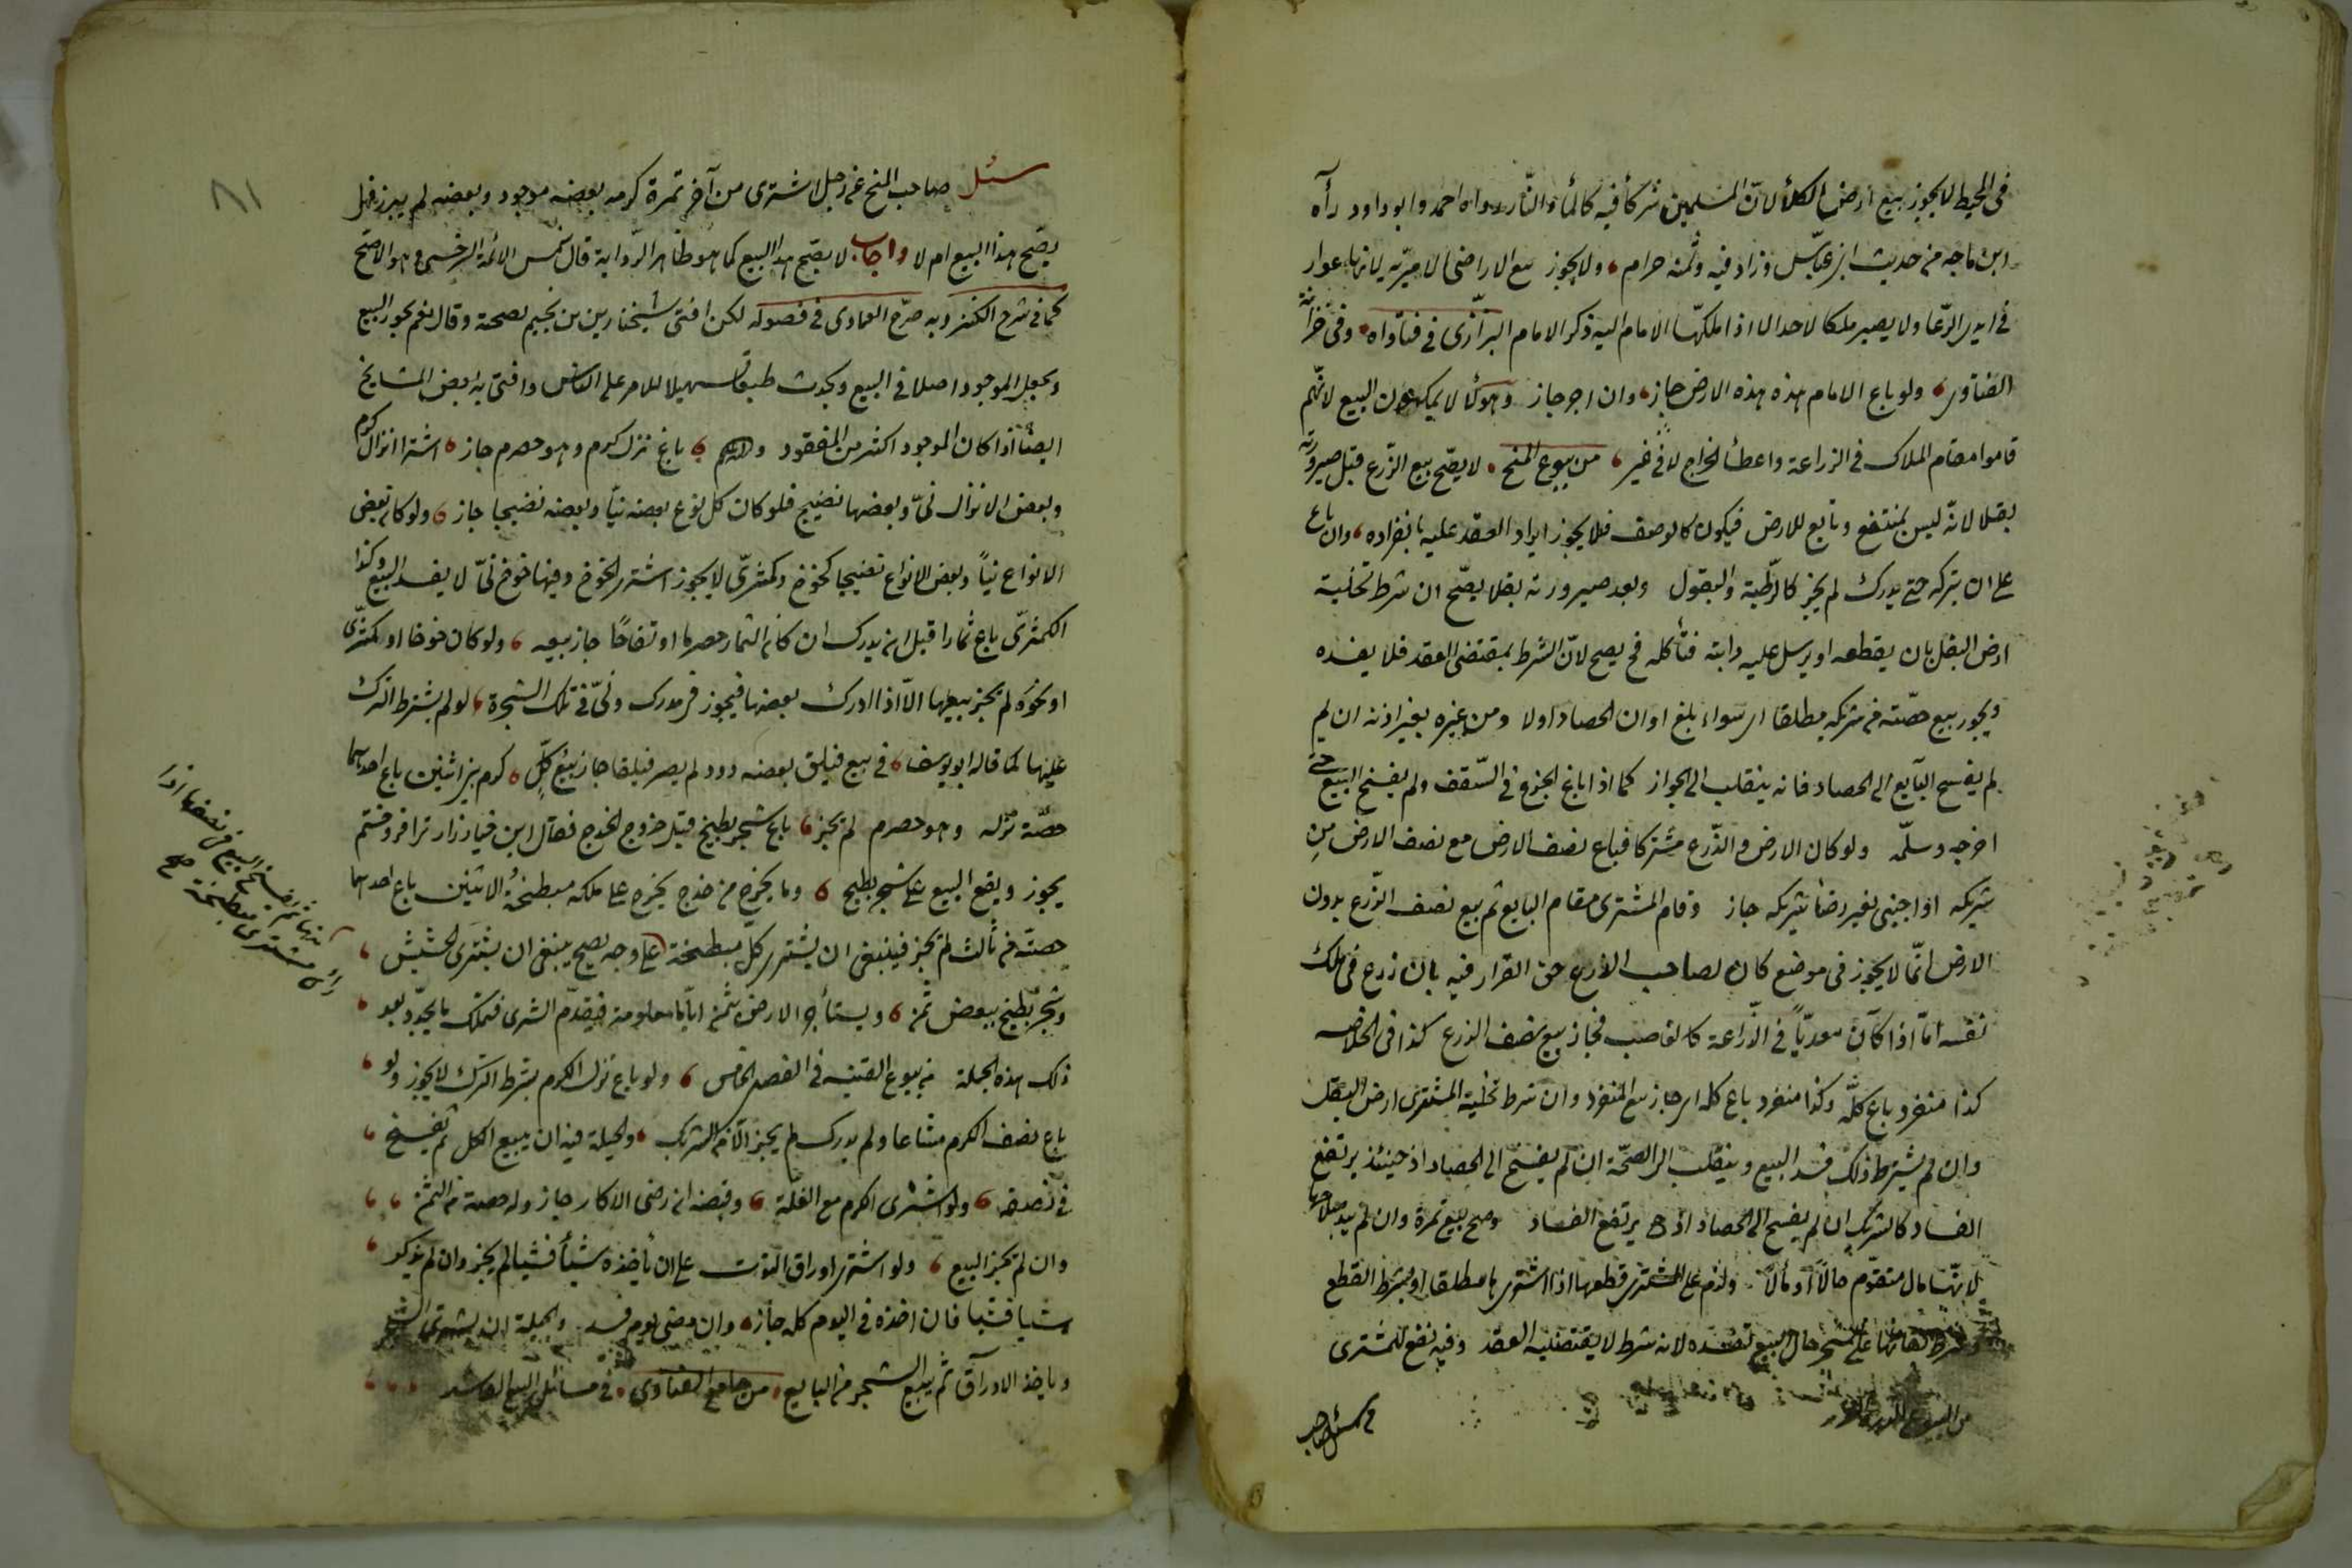 في المحيط لا يجوز بيع ارض الكلأ لانّ المسلمين شركأ فيه كالمأ والنّار رواه احمد وابو داود رآه
ابن ماجه من حديث ابن عبّاس وزاد فيه وثمنه حرام ولا يجوز بيع الاراضى الاميريّه لانها عوار
في ايدى الرّعايا ولا يصير ملكا لاحد الا اذا ملكها الامام اليه ذكر الامام البزّازى في فتاواه وفي خزانة
الفتاوى ولو باع الامام هذه هذه الارض جاز وان اجر جاز وهؤلأ لا يملكون البيع لانّهم
قاموا مقام الملاك في الزراعة واعطأ الخراج لا في غير من بيوع المنح لا يصّح بيع الزّرع قبل صيرورته
بقلا لانّه ليس بمنتفع وتابع للارض فيكون كالوصف فلا يجوز ايراد العقد عليه بانفراده وان باع
على ان يتركه حتى يدرك لم يجز كالرّطبة والبقول وبعد صيرورته بقلا يصّح ان شرط تخلية
ارض البقل بان يقطعه او يرسل عليه دابته فتأكله فح يصح لانّ الشرط بمقتضى العقد فلا يفسده
ويجوز بيع حصّته من شريكه مطلقا اى سواء بلغ اوان الحصاد اولا ومن غيره بغير اذنه ان لم
لم يفسخ البآيع الى الحصاد فانه ينقلب الى الجواز كما اذا باع الجذع في السّقف ولم يفسخ البيع حتى
اخرجه وسلّمه ولو كان الارض والزّرع مشتركا فباع نصف الارض مع نصف الارض من
شريكه او اجنبى بغير رضأ شريكه جاز وقام المشترى مقام البايع ثم بيع نصف الزّرع بدون
الارض انّما لا يجوز فى موضع كان لصاحب الزرع حق القرار فيه بان زرع فى ملك
نفسه امّا اذا كان متعديّاً في الزّراعة كالغاصب فجاز بيع نصف الزرع كذا في الخلاصه
كذا منفرد باع كلّه وكذا منفرد باع كله اى جاز بيع المنفرد وان شرط تخلية المشترى ارض البقل
وان لم يشترط ذلك فسد البيع وينقلب الى الصحّة ان لم يفسخ الى الحصاد اذ حينئذ يرتفع
الفساد كالشريك ان لم يفسخ الى الحصاد اذ ح يرتفع الفساد وصح بيع ثمرة وان لم يبد صلاحها
لانّها مال متقوّم حالاً او مآلاً ولزم على المشترى قطعها اذا اشترى ها مطلقا او بشرط القطع
وشرط بقائها على الشجر حال البيع تفسده لانه شرط لا يقتضيه العقد وفيه نفع للمشترى
من البيوع
سئل صاحب
٨١
سئل صاحب المنح عن رجل اشترى من آخر ثمرة كرمه بعضه موجود وبعضه لم يبرز فهل
يصّح هذا البيع ام لا واجاب لا يصّح هذا البيع كما هو ظاهر الرّواية قال شمس الائمّة السّرخسى وهو الاصّح
كما في شرح الكنز وبه صرّح العمادى فى فصوله لكن افتى شيخنا زين بن نجيم بصحته وقال نعم يجوز البيع
ويجعل الموجود اصلا فى البيع ويحدث طبقا تسهيلا للامر على الناس وافتى به بعض المشايخ
ايضاً اذا كان الموجود اكثر من المفقود باع نزل كرم وهو حصرم جاز اشترا انزال كرم
وبعض الانزال نىّ وبعضها نضيج فلو كان كل نوع بعضه نيّا وبعضه نضيجا جاز ولو كان بعض
الانواع نيّاً وبعض الانواع نضيجا كخوخ وكمثرىّ لا يجوز اشترى الخوخ وفيها خوخ نىّ لا يفسد البيع وكذا
الكمثرىّ باع ثمارا قبل ان يدرك ان كان الثمار حصرما او تفاحًا جاز بيعه ولو كان خوخا او كمثرّى
او نحوه لم يجز بيعها الاّ اذا ادرك بعضها فيجوز في مدرك ونىّ في تلك الشجرة لو لم يشترط الترك
عليها كما قاله ابو يوسف في بيع فيلق بعضه دود لم يصر فيلقا جاز بيع كلّ كرم بين اثنين باع احدهما
حصّة نزله وهو حصرم لم يجز باع شجر بطيخ قبل خروج الخدج فقال اين خيارزار ترا فروختم
يجوز ويقع البيع على شجر بطيخ وما يخرج من خدج يخرج على ملكه مبطخة الاثنين باع احدهما
حصته من ثالث لم يجز فينبغى ان يشترى كلّ مبطخة على وجه يصح ينبغى ان يشترى الحشيش
وشجر بطيخ ببعض ثمن ويستأجر الارض بثمن ايّاما معلومة فيقدّم الشرى فتملك ما يحدّد بعد
ذلك هذه الجملة من بيوع القنيه فى الفصل الخامس ولو باع نزل الكرم بشرط الترك لا يجوز ولو
باع نصف الكرم مشاعا ولم يدرك لم يجز الاّ من الشريك والحيلة فيه ان يبيع الكل ثم يفسخ
فى نصفه ولو اشترى الكرم مع الغلّة وقبضه ان رضى الاكار جاز وله حصته من الثمن
وان لم يجز البيع ولو اشترى اوراق التوت على ان يأخذه شيأ فشيا لم يجز وان لم يذكر
شيا فشيا فان اخذه فى اليوم كله جاز وان مضى اليوم فسد والحيلة ان يشترى الشجر
وياخذ الاوراق ثم يبيع الشجر من البايع من جامع الفتاوى فى مسائل البيع الفاسد